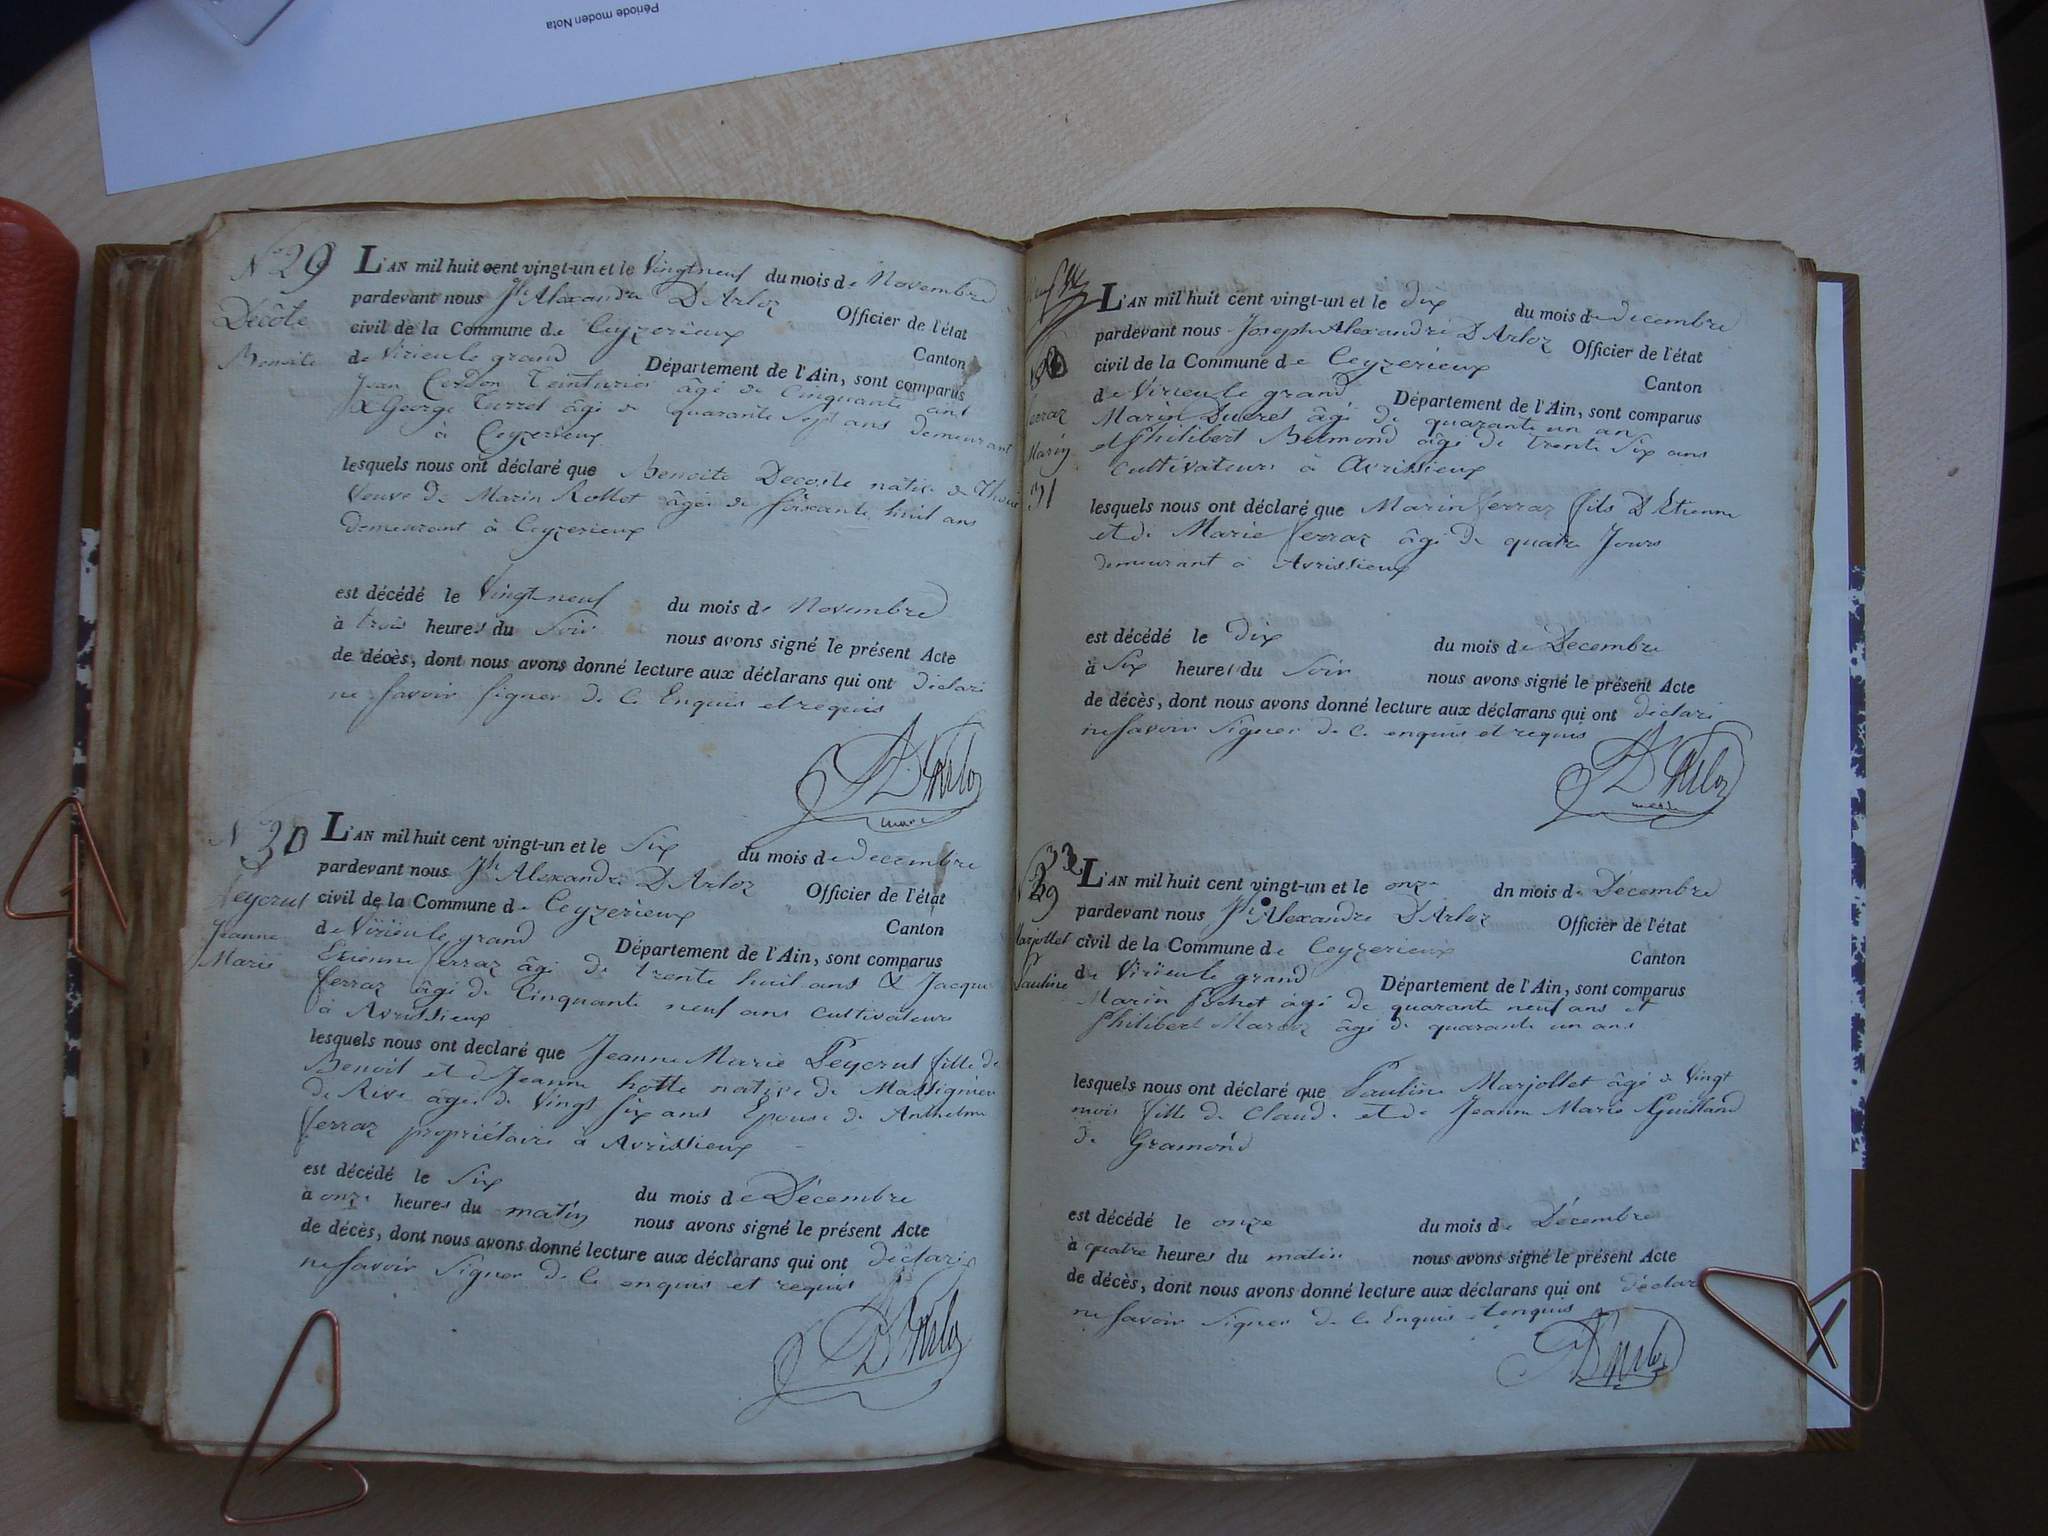 Période moden Nota
N° 29
Decôte
Benoite
L'AN mil huit cent vingt-un et le Vingt neuf du mois de Novembre
pardevant nous Jh Alexandre D Arloz Officier de l'état
civil de la Commune de Ceyzerieux Canton
de Virieu le grand Département de l'Ain, sont comparus
Jean Cerdon Teinturier âgé de Cinquante ans
& George Turrel âgé de quarante Sept ans demeurant
à Ceyzerieux
lesquels nous ont déclaré que Benoite Decoste native de
Veuve de Marin Rollet âgée de soixante huit ans
demeurant à Ceyzerieux
est décédé le Vingt neuf du mois de Novembre
à trois heures du Soir nous avons signé le présent Acte
de décès, dont nous avons donné lecture aux déclarans qui ont déclaré
ne savoir signer de ce Enquis et requis
D'Arloz
maire
N° 30
Peyerut
Jeanne
Marie
L'AN mil huit cent vingt-un et le Six du mois de decembre
pardevant nous Jh Alexandre D Arloz Officier de l'état
civil de la Commune de Ceyzerieux Canton
de Virieu le grand Département de l'Ain, sont comparus
Etienne ferraz âgé de trente huit ans & Jacque
ferraz âgé de Cinquante neuf ans cultivateurs
à Avrissieux
lesquels nous ont declaré que Jeanne Marie Peyerut fille de
Benoit et de Jeanne hotte native de Massignieu
de Rive âgée de Vingt Six ans Epouse de Anthelme
ferraz propriétaire à Avrissieux
est décédé le Six du mois de Décembre
à onze heures du matin nous avons signé le présent Acte
de décès, dont nous avons donné lecture aux déclarans qui ont déclaré
ne savoir signer de ce enquis et requis
D'Arloz
ferraz
Marin
31
L'AN mil huit cent vingt-un et le dix du mois de decembre
pardevant nous Joseph Alexandre D Arloz Officier de l'état
civil de la Commune de Ceyzerieux Canton
de Virieu le grand Département de l'Ain, sont comparus
Marin Ducret âgé de quarante un an
et philibert Bermond âgé de trente Six ans
cultivateurs à Avrissieux
lesquels nous ont déclaré que Marin ferraz fils D'Etienne
et de Marie ferraz âgé de quatre Jours
demeurant à Avrissieux
est décédé le dix du mois de Decembre
à Six heures du Soir nous avons signé le présent Acte
de décès, dont nous avons donné lecture aux déclarans qui ont déclaré
ne savoir signer de ce enquis et requis
D'Arloz
maire
32
29
Marjollet
Pauline
L'AN mil huit cent vingt-un et le onze dn mois de Décembre
pardevant nous Jh Alexandre D'Arloz Officier de l'état
civil de la Commune de Ceyzerieux Canton
de Virieu le grand Département de l'Ain, sont comparus
Marin fochet âgé de quarante neuf ans et
philibert âgé de quarante un ans
lesquels nous ont déclaré que Pauline Marjollet âgé de Vingt
mois fille de Claude et de Jeanne Marie Guilland
de Gramond
est décédé le onze du mois de Décembre
à quatre heures du matin nous avons signé le présent Acte
de décès, dont nous avons donné lecture aux déclarans qui ont déclaré
ne savoir signer de ce Enquis
D'Arloz